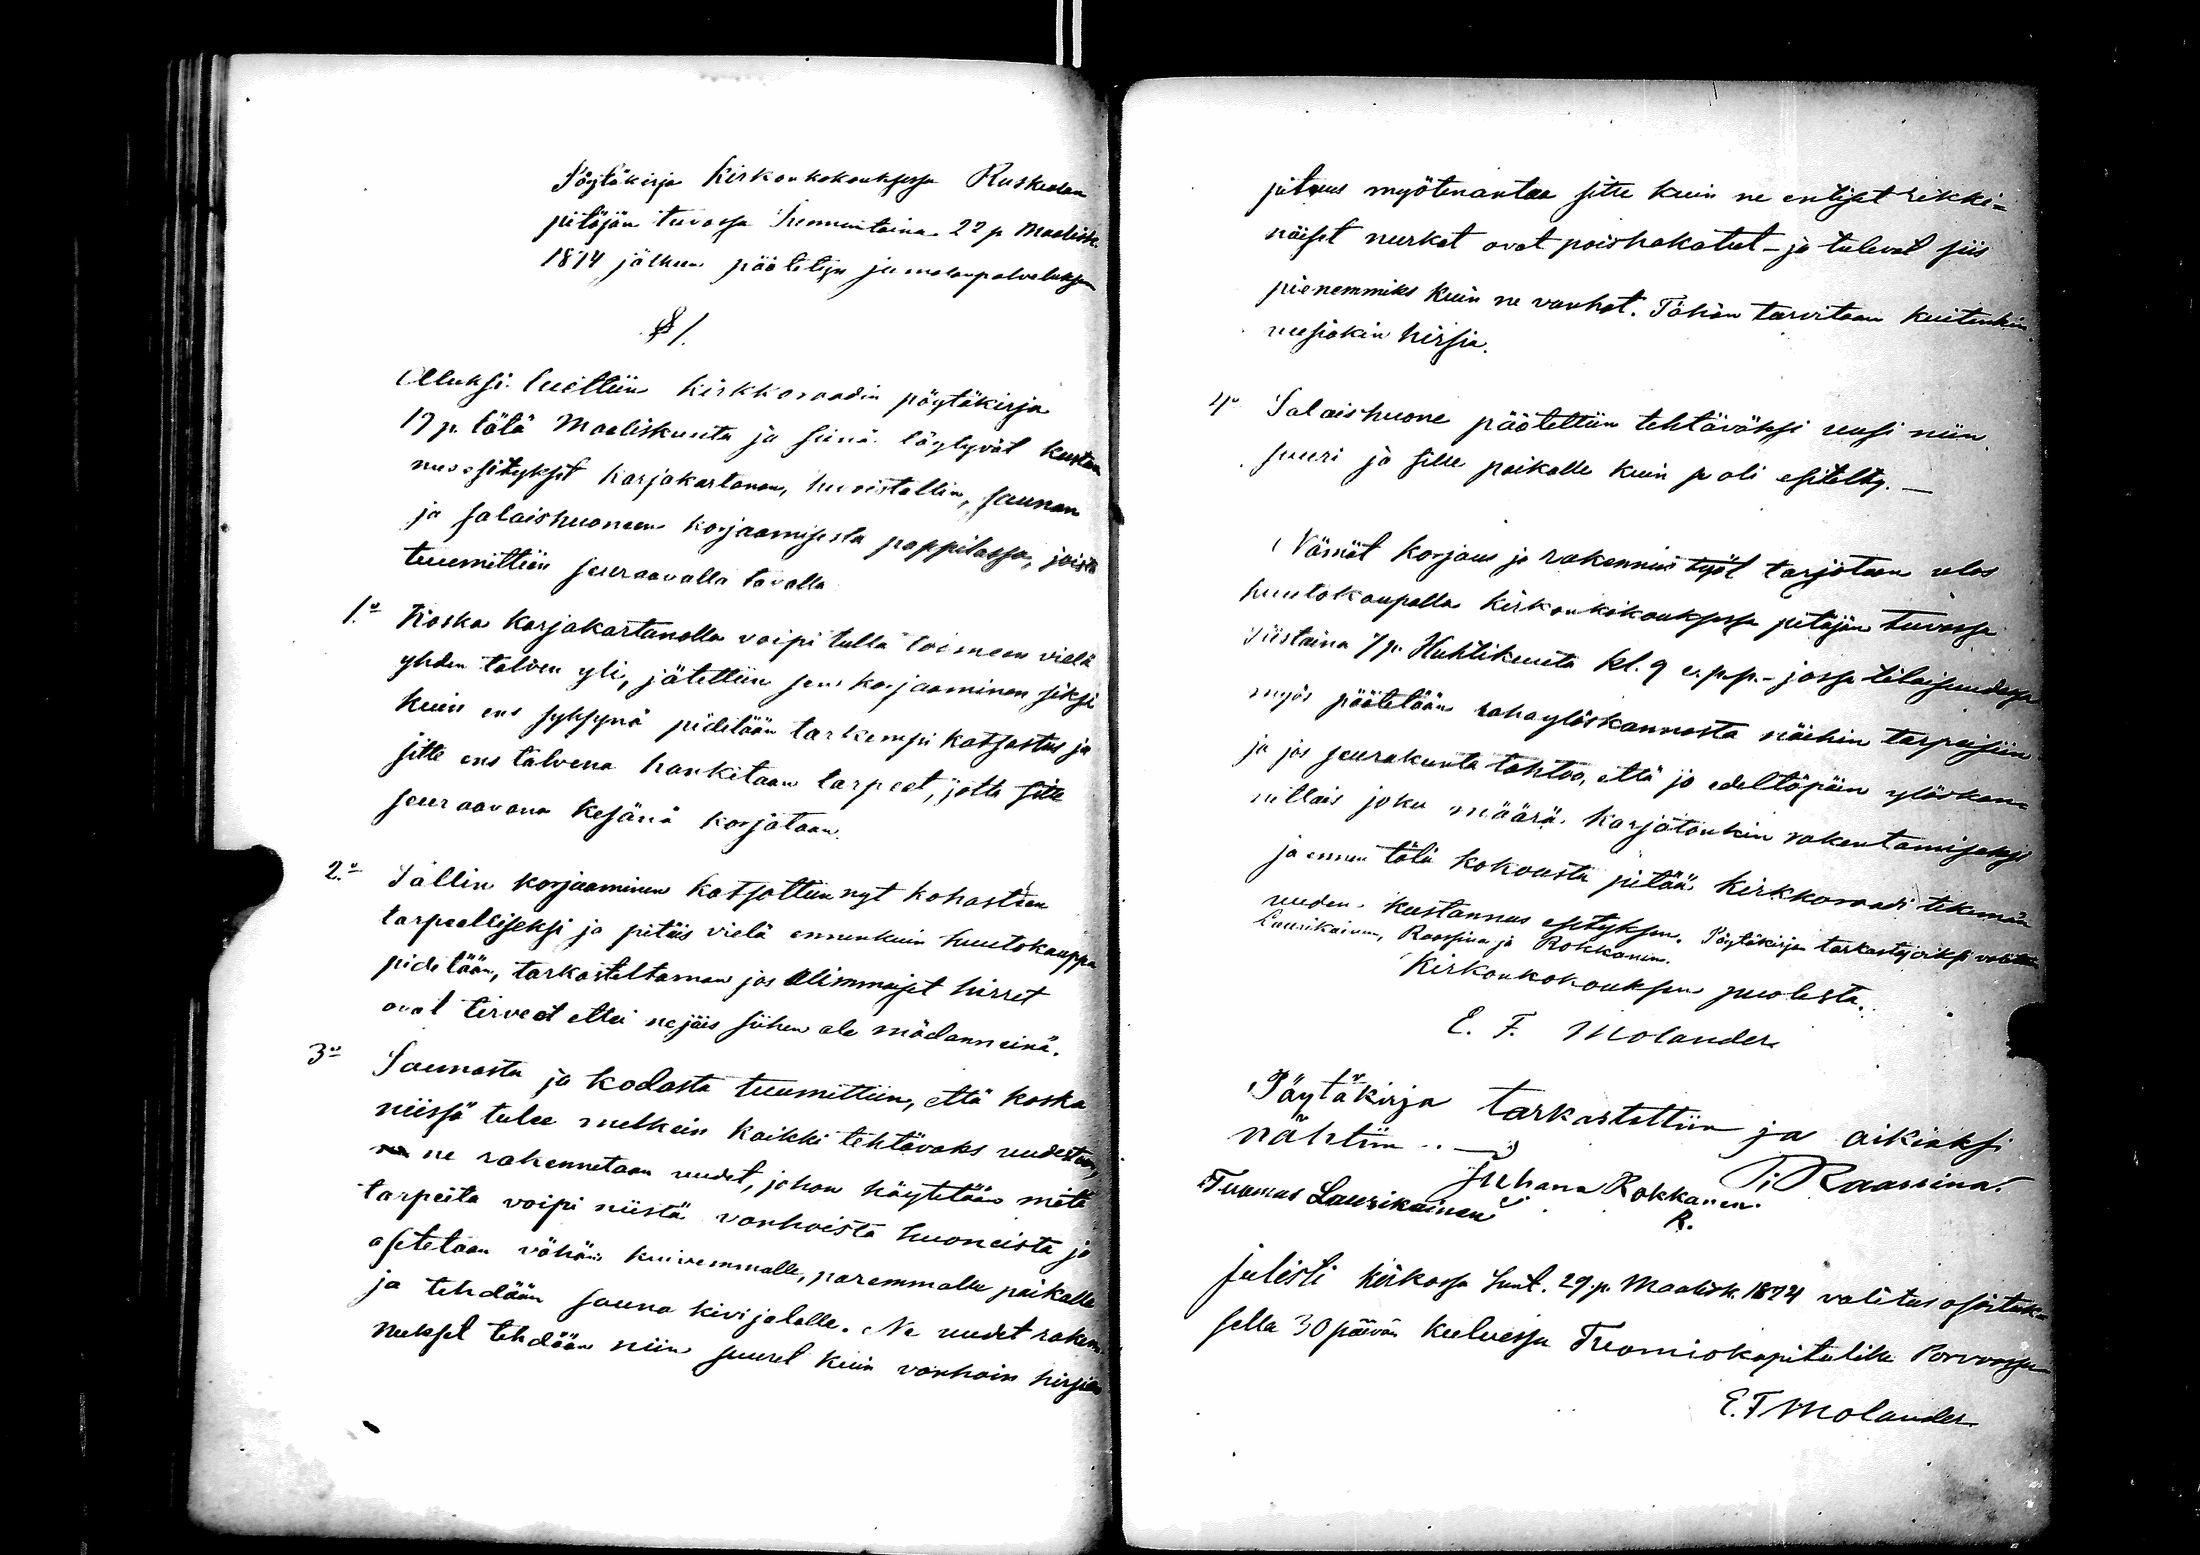 Pöytäkirja Kirkonkokouksessa Ruskealan
pitäjän tuvassa Sunnuntaina 22 p Maalisk.
1874 jälkeen päätetyn jumalanpalveluksen
§ 1.
Aluksi luettiin kirkkoraadin pöytäkirja
17 p. tätä Maaliskuuta ja siinä löytyvät kustan
nus esitykset karjakartanon, huvistallin, saunan
ja salaishuoneen korjaamisesta pappilassa, joista
tuumittiin seuraavalla tavalla
1.o Koska karjakartanolla voipi tulla toimeen vielä
yhden talven yli, jätettiin sen korjaaminen siksi
kuin ens syksynä pidetään tarkempi katsastus ja
sitte ens talvena hankitaan tarpeet, jotta sitte
seuraavana kesänä korjataan.
2.o Tallin korjaaminen katsottiin nyt kohastaan
tarpeelliseksi ja pitäis vielä ennenkuin huutokauppa
pidetään, tarkasteltaman jos alimmaiset hirret
ovat terveet ettei ne jäis siihen ala mädänneinä.
3o Saunasta ja kodasta tuumittiin, että koska
niissä tulee melkein kaikki tehtäväks uudestaan,
ne rakennetaan uudet, johon käytetään mitä
tarpeita voipi niistä vanhoista huoneista ja
asetetaan vähän kuivemmalle, paremmalle paikalle
ja tehdään sauna kivijalalle. Ne uudet raken
nukset tehdään niin suuret kuin vanhain hirsien
pituus myötenantaa sitte kuin ne entiset rikki-
näiset nurkat ovat poishakatut - ja tulevat siis
pienemmiks kuin ne vanhat. Tähän tarvitaan kuitenkin
uusiakin hirsia.
4o Salaishuone päätettiin tehtäväksi uusi niin
suuri ja sille paikalle kuin se oli esitelty. —
Nämät korjaus ja rakennus työt tarjotaan ulos
huutokaupalla kirkonkokouksessa pitäjän tuvassa
tiistaina 7 p. Huhtikuuta kl. 9 e.p.p. - jossa tilaisuudessa
myös päätetään rahaylöskannosta näihin tarpeisiin
ja jos seurakunta tahtoo, että jo edeltäpäin ylöskan
nettais joku määrä karjatonkin rakentamiseksi
ja ennen tätä kokousta pitää kirkkoraadi tekemän
uuden kustannus esityksen. Pöytäkirjan tarkastajoiksi valittiin
Laurikainen, Raassina ja Rokkanen.
Kirkonkokouksen puolesta.
E. F. Molander
Pöytäkirja tarkastettiin ja oikiaksi
nähtiin
Tuomas Laurikainen Juhana Rokkanen P. Raassina.
R.
Julisti kirkossa Sunt. 29. p. Maalisk. 1874 valitus osoituk-
sella 30 päivän kuluessa Tuomiokapitulille Porvoossa
E. F. Molander